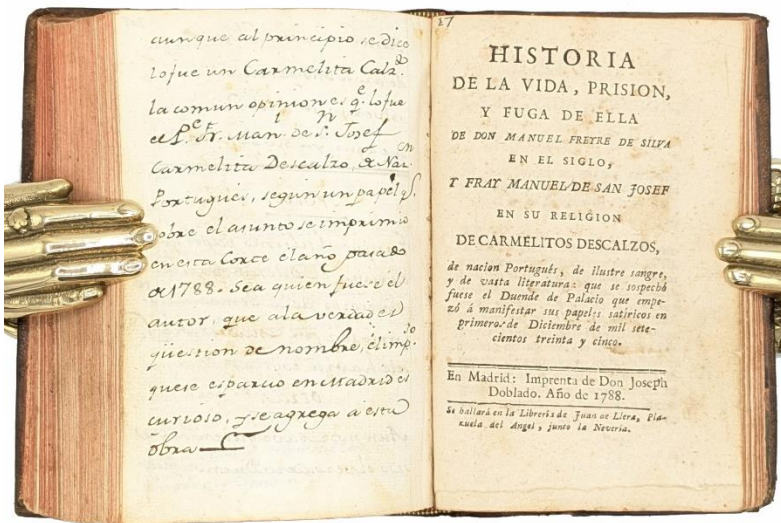 aunque al principio se dice
lo fue un Carmelita Calz.do
la comun opinion es q.e lo fue
el P.e Fr. Man.l de S.n Josef
Carmelita Descalzo, de Na.on
Portugués, segun un papel q.e
sobre el asunto se imprimio
en esta Corte el año pasado
de 1788. Sea quien fuese el
autor, que ala verdad es
qüestion de nombre, el imp.so
que se esparcio en Madrid es
curioso, y se agrega a esta
obra
27
HISTORIA
DE LA VIDA, PRISION,
Y FUGA DE ELLA
DE DON MANUEL FREYRE DE SILVA
EN EL SIGLO,
Y FRAY MANUEL DE SAN JOSEF
EN SU RELIGION
DE CARMELITOS DESCALZOS,
de nacion Portugués, de ilustre sangre,
y de vasta literatura: que se sospechó
fuese el Duende de Palacio que empe-
zó á manifestar sus papeles satíricos en
primeros de Diciembre de mil sete-
cientos treinta y cinco.
En Madrid: Imprenta de Don Joseph
Doblado. Año de 1788.
Se hallará en la Librería de Juan de Llera, Pla-
zuela del Angel, junto la Nevería.